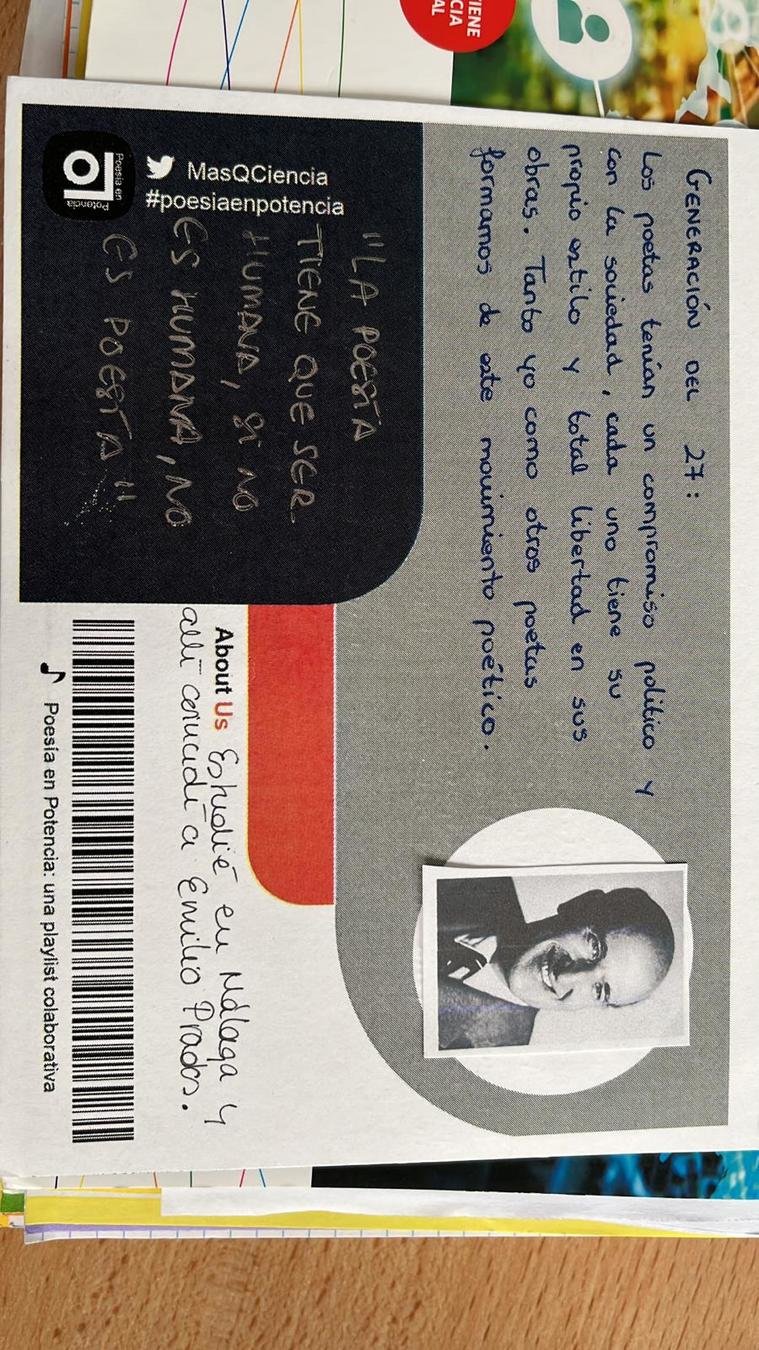 GENERACIÓN DEL 27:
Los poetas tenían un compromiso político y
con la sociedad, cada uno tiene su
propio estilo y total libertad en sus
obras. Tanto yo como otros poetas
formamos de este movimiento poético.
MasQCiencia
#poesiaenpotencia
Poesía en
Potencia
"LA POESÍA
TIENE QUE SER
HUMANA, SI NO
ES HUMANA, NO
ES POESÍA"
About Us Estudié en Málaga y
allí conocí a Emilio Prados.
Poesía en Potencia: una playlist colaborativa
TIENE
CIA
AL